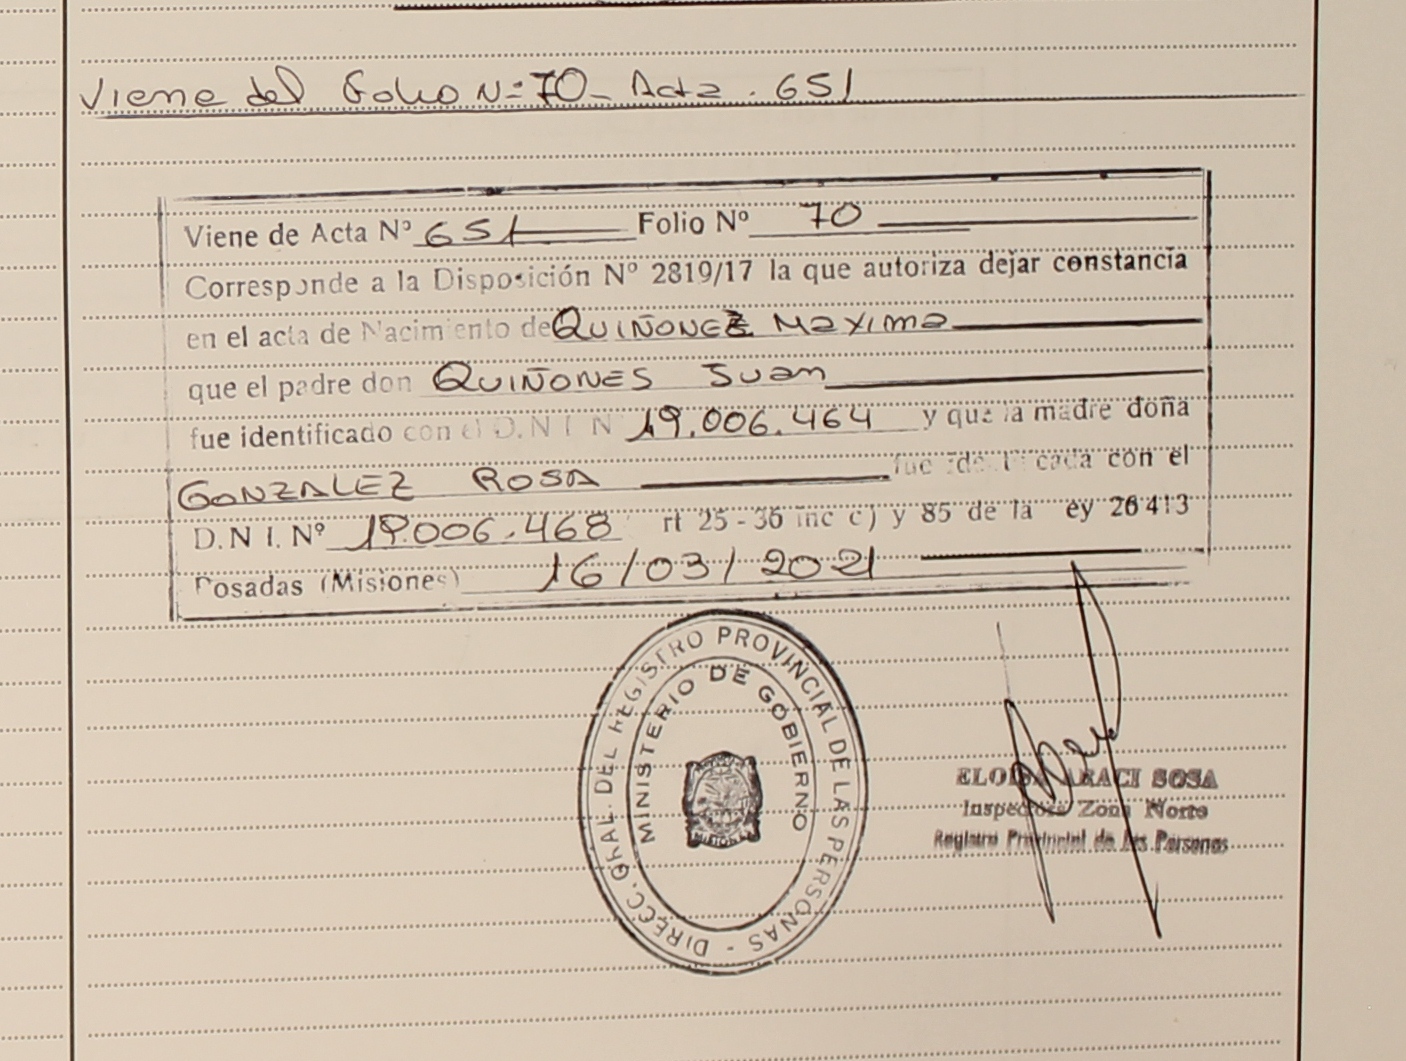 Viene del Folio N=70- Acta. 651
Viene de Acta Nº 651 Folio Nº 70
Corresponde a la Disposición Nº 2819/17 la que autoriza dejar constancia
en el acta de Nacimiento de QUIÑONEZ Maxima
que el padre don QUIÑONES Juan
fue identificado con el D.N.I. N 19.006.464 y que la madre doña
GONZALEZ ROSA fue identificada con el
D.N.I. Nº 19.006.468 rt 25-36 inc c) y 85 de la ey 26413
Posadas (Misiones) 16/03/2021
DIRECC. GRAL. DEL REGISTRO PROVINCIAL DE LAS PERSONAS -
MINISTERIO DE GOBIERNO
MISIONES
ELOISA ARACI SOSA
Inspectora Zona Norte
Registro Provincial de las Personas